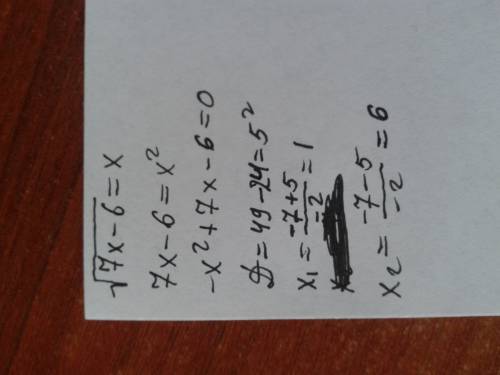 √7x-6=x
7x-6=x²
-x²+7x-6=0
D=49-24=5²
x₁=(-7+5)/(-2)=1
x₂=(-7-5)/(-2)=6